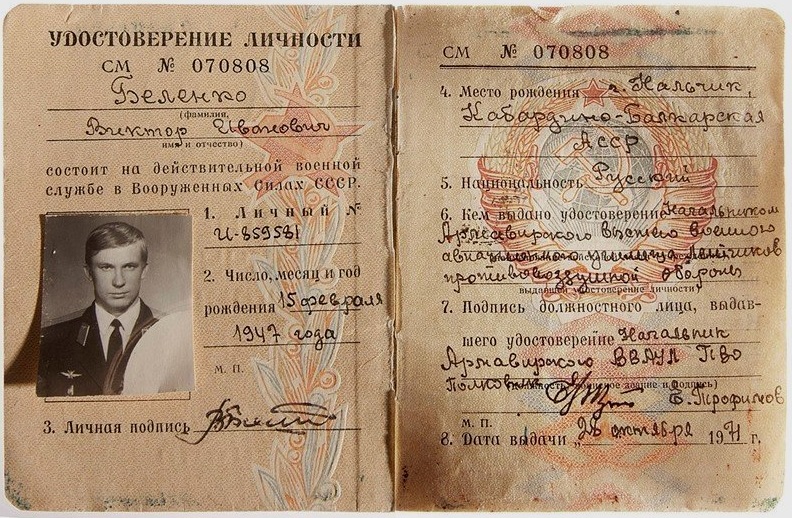 УДОСТОВЕРЕНИЕ ЛИЧНОСТИ
СМ № 070808
Беленко
(фамилия,
Виктор Иванович
имя и отчество)
состоит на действительной военной
службе в Вооруженных Силах СССР.
1. Личный №
И-859581
2. Число, месяц и год
рождения 15 февраля
1947 года
М. П.
3. Личная подпись
СМ № 070808
4. Место рождения г. Нальчик,
Кабардино-Балкарская
АССР
5. Национальность Русский
6. Кем выдано удостоверение Начальником
Армавирского высшего военного
авиационного училища летчиков
противовоздушной обороны
выдавшей удостоверение личности)
7. Подпись должностного лица, выдав-
шего удостоверение Начальник
Армавирского ВВАУЛ ПВО
Полковник воинское звание и подпись)
Е. Трофимов
М. П.
8. Дата выдачи „28 октября 1971 г.